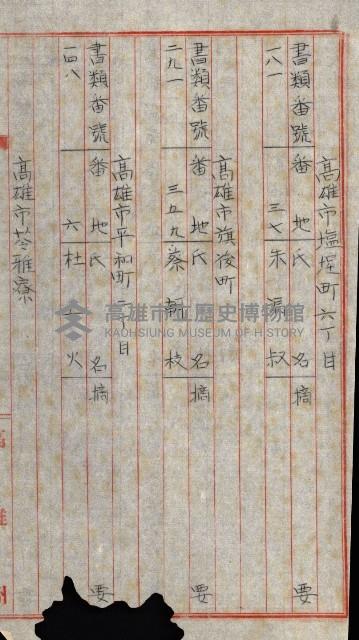 高雄市塩埕町六丁目
書類番號 番地 氏名 摘要
一八一 三七 朱 叔
高雄市旗後町
書類番號 番地 氏名 摘要
二九一 三五九 蔡 枝
高雄市平和町 目
書類番號 番地 氏名 摘要
一四八 六 杜 火
高雄市苓雅寮
高雄市立歷史博物館
KAOHSIUNG MUSEUM OF HISTORY
高雄州